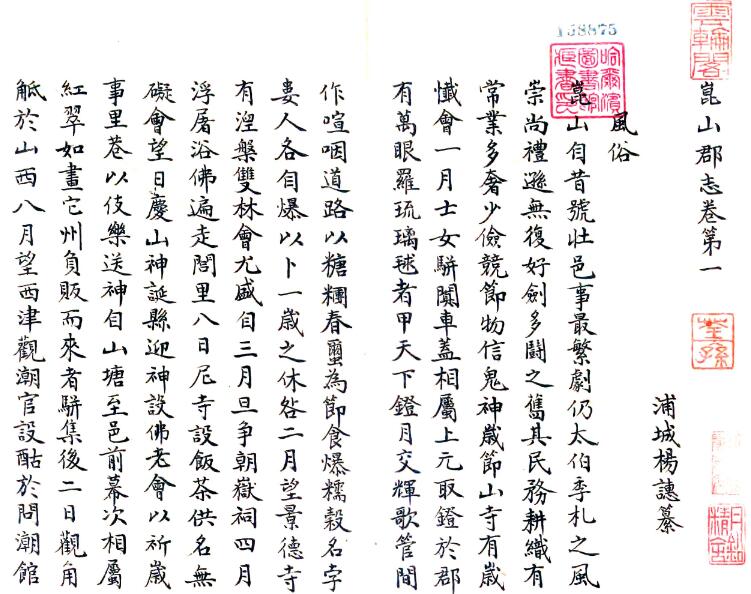 158875
崑山郡志卷第一
浦城楊譓纂
風俗
崑山自昔號壯邑事最繁劇仍太伯季札之風
崇尚禮遜無復好劍多鬬之舊其民務耕織有
常業多奢少儉競節物信鬼神歲節山寺有歲
懺會一月士女駢闐車蓋相屬上元取鐙於郡
有萬眼羅琉璃毬者甲天下鐙月交輝歌管間
作喧咽道路以糖糰春蠒為節食爆糯穀名孛
婁人各自爆以卜一歲之休咎二月望景德寺
有涅槃雙林會尤盛自三月旦爭朝嶽祠四月
浮屠浴佛遍走閭里八日尼寺設飯茶供名無
礙會望日慶山神誕縣迎神設佛老會以祈歲
事里巷以伎樂送神自山塘至邑前幕次相屬
紅翠如畫它州負販而來者駢集後二日觀角
觝於山西八月望西津觀潮官設酤於問潮館